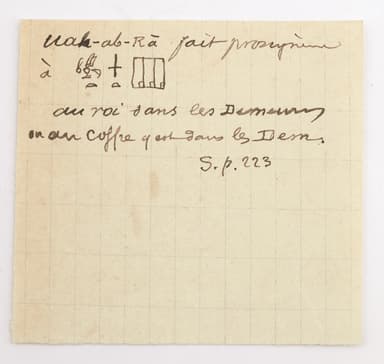 uah-ab-Râ fait proscynème
à
au roi dans les Demeures
ou au Coffre q est dans les Dem.
S.p. 223